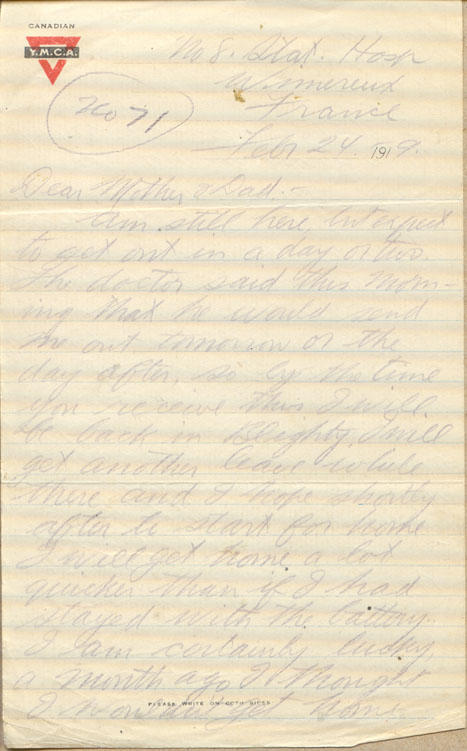 CANADIAN
Y.M.C.A.
No 8. Stat. Hosp
Wimereux
France
No 71
Feb 24. 1919.
Dear Mother & Dad:-
Am still here, but expect
to get out in a day or two.
The doctor said this morn-
ing that he would send
me out tomorrow or the
day after, so by the time
you receive this I will
be back in Blighty. I will
get another leave while
there and I hope shortly
after to start for home
I will get home a lot
quicker than if I had
stayed with the battery.
I am certainly lucky
a month ago I thought
I wouldn't get home
PLEASE WRITE ON BOTH SIDES